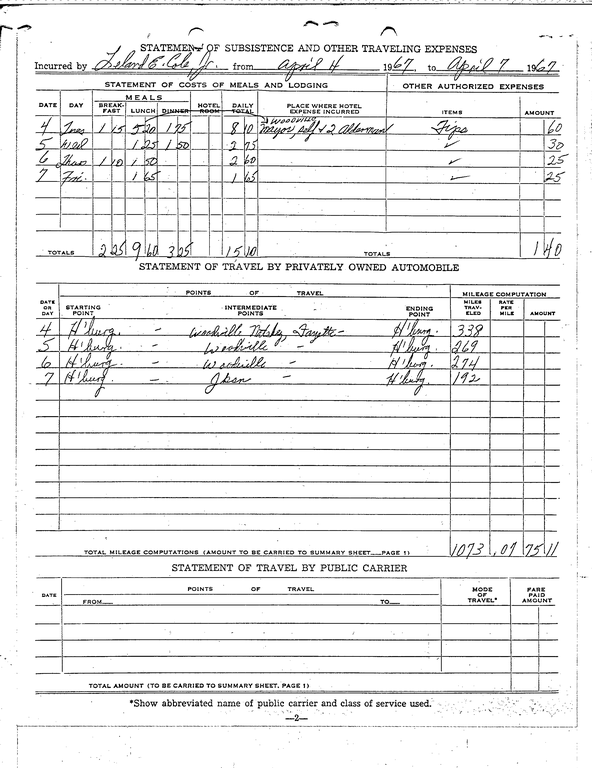 STATEMENT OF SUBSISTENCE AND OTHER TRAVELING EXPENSES
Incurred by Leland E. Cole, Jr. from April 4 1967 to April 7 1967
STATEMENT OF COSTS OF MEALS AND LODGING OTHER AUTHORIZED EXPENSES
DATE DAY MEALS BREAK-FAST LUNCH DINNER HOTEL ROOM DAILY TOTAL PLACE WHERE HOTEL EXPENSE INCURRED ITEMS AMOUNT
WOODVILLE
4 Tues 1 15 5 20 1 75 8 10 Mayor self & 2 Alderman Tips 60
5 Wed 1 25 1 50 2 75 ✓ 30
6 Thur 1 10 1 50 2 60 ✓ 25
7 Fri. 1 65 1 65 ✓ 25
TOTALS 2 25 9 60 3 25 15 10 TOTALS 1 40
STATEMENT OF TRAVEL BY PRIVATELY OWNED AUTOMOBILE
POINTS OF TRAVEL MILEAGE COMPUTATION
DATE OR DAY STARTING POINT INTERMEDIATE POINTS ENDING POINT MILES TRAV-ELED RATE PER MILE AMOUNT
4 H'burg. - Woodville Natchez Fayette - H'burg. 338
5 H'burg. - Woodville - H'burg. 269
6 H'burg. - Woodville - H'burg. 274
7 H'burg. - Jksn - H'burg. 192
TOTAL MILEAGE COMPUTATIONS (AMOUNT TO BE CARRIED TO SUMMARY SHEET PAGE 1) 1073 .07 75 11
STATEMENT OF TRAVEL BY PUBLIC CARRIER
DATE POINTS OF TRAVEL MODE OF TRAVEL* FARE PAID AMOUNT
FROM TO
TOTAL AMOUNT (TO BE CARRIED TO SUMMARY SHEET. PAGE 1)
*Show abbreviated name of public carrier and class of service used.
—2—